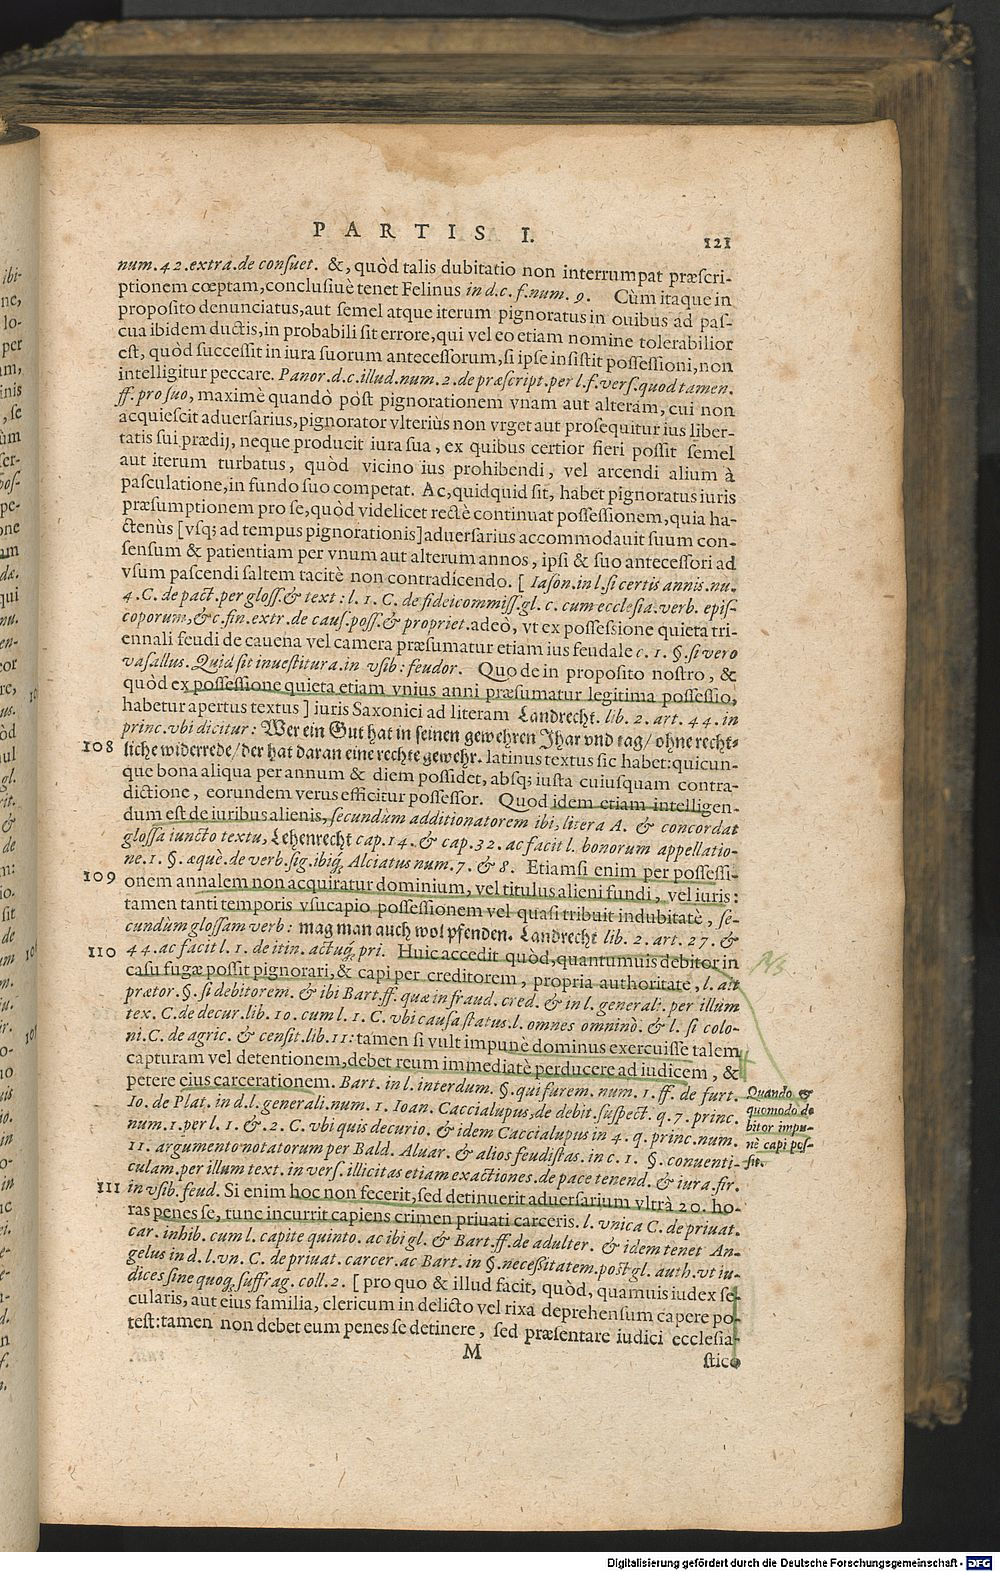 PARTIS I.
121
num. 42. extra. de consuet. &, quòd talis dubitatio non interrumpat præscri-
ptionem cœptam, conclusiuè tenet Felinus in d. c. f. num. 9. Cùm itaque in
proposito denunciatus, aut semel atque iterum pignoratus in ouibus ad pas-
cua ibidem ductis, in probabili sit errore, qui vel eo etiam nomine tolerabilior
est, quòd successit in iura suorum antecessorum, si ipse insistit possessioni, non
intelligitur peccare. Panor. d. c. illud. num. 2. de præscript. per l. f. vers. quod tamen.
ff. pro suo, maximè quando pòst pignorationem vnam aut alteram, cui non
acquiescit aduersarius, pignorator vlteriùs non vrget aut prosequitur ius liber-
tatis sui prædij, neque producit iura sua, ex quibus certior fieri possit semel
aut iterum turbatus, quòd vicino ius prohibendi, vel arcendi alium à
pasculatione, in fundo suo competat. Ac, quidquid sit, habet pignoratus iuris
præsumptionem pro se, quòd videlicet rectè continuat possessionem, quia ha-
ctenùs [vsq; ad tempus pignorationis] aduersarius accommodauit suum con-
sensum & patientiam per vnum aut alterum annos, ipsi & suo antecessori ad
vsum pascendi saltem tacitè non contradicendo. [ Iason. in l. si certis annis. nu.
4. C. de pact. per gloss. & text: l. 1. C. de fideicommiss. gl. c. cum ecclesia. verb. epis-
coporum, & c. fin. extr. de caus. poss. & propriet. adeò, vt ex possessione quieta tri-
ennali feudi de cauena vel camera præsumatur etiam ius feudale c. 1. §. si vero
vasallus. Quid sit inuestitura. in vsib: feudor. Quo de in proposito nostro, &
quòd ex possessione quieta etiam vnius anni præsumatur legitima possessio,
habetur apertus textus ] iuris Saxonici ad literam Landrecht. lib. 2. art. 44. in
princ. vbi dicitur: Wer ein Gut hat in seinen gewehren Jhar vnd tag/ ohne recht-
108 liche widerrede/ der hat daran eine rechte gewehr. latinus textus sic habet: quicun-
que bona aliqua per annum & diem possidet, absq; iusta cuiusquam contra-
dictione, eorundem verus efficitur possessor. Quod idem etiam intelligen-
dum est de iuribus alienis, secundùm additionatorem ibi, litera A. & concordat
glossa iuncto textu, Lehenrecht cap. 14. & cap. 32. ac facit l. bonorum appellatio-
ne. 1. §. æquè. de verb. sig. ibiq; Alciatus num. 7. & 8. Etiamsi enim per possessi-
109 onem annalem non acquiratur dominium, vel titulus alieni fundi, vel iuris:
tamen tanti temporis vsucapio possessionem vel quasi tribuit indubitatè, se-
cundùm glossam verb: mag man auch wol pfenden. Landrecht lib. 2. art. 27. &
110 44. ac facit l. 1. de itin. actuq; pri. Huic accedit quòd, quantumuis debitor in
casu fugæ possit pignorari, & capi per creditorem, propria authoritate, l. ait
prætor. §. si debitorem. & ibi Bart. ff. quæ in fraud. cred. & in l. generali. per illum
tex. C. de decur. lib. 10. cum l. 1. C. vbi causa status. l. omnes omninò. & l. si colo-
ni. C. de agric. & censit. lib. 11: tamen si vult impunè dominus exercuisse talem
capturam vel detentionem, debet reum immediatè perducere ad iudicem, &
petere eius carcerationem. Bart. in l. interdum. §. qui furem. num. 1. ff. de furt.
Io. de Plat. in d. l. generali. num. 1. Ioan. Caccialupus, de debit. suspect. q. 7. princ.
num. 1. per l. 1. & 2. C. vbi quis decurio. & idem Caccialupus in 4. q. princ. num.
11. argumento notatorum per Bald. Aluar. & alios feudistas. in c. 1. §. conuenti-
culam. per illum text. in vers. illicitas etiam exactiones. de pace tenend. & iura. fir.
111 in vsib. feud. Si enim hoc non fecerit, sed detinuerit aduersarium vltrà 20. ho-
ras penes se, tunc incurrit capiens crimen priuati carceris. l. vnica C. de priuat.
car. inhib. cum l. capite quinto. ac ibi gl. & Bart. ff. de adulter. & idem tenet An-
gelus in d. l. vn. C. de priuat. carcer. ac Bart. in §. necessitatem. post gl. auth. vt iu-
dices sine quoq; suffrag. coll. 2. [ pro quo & illud facit, quòd, quamuis iudex se-
cularis, aut eius familia, clericum in delicto vel rixa deprehensum capere po-
test: tamen non debet eum penes se detinere, sed præsentare iudici ecclesia-
M
stico
Quando &
quomodo de
bitor impu-
nè capi pos-
sit.
Digitalisierung gefördert durch die Deutsche Forschungsgemeinschaft - DFG